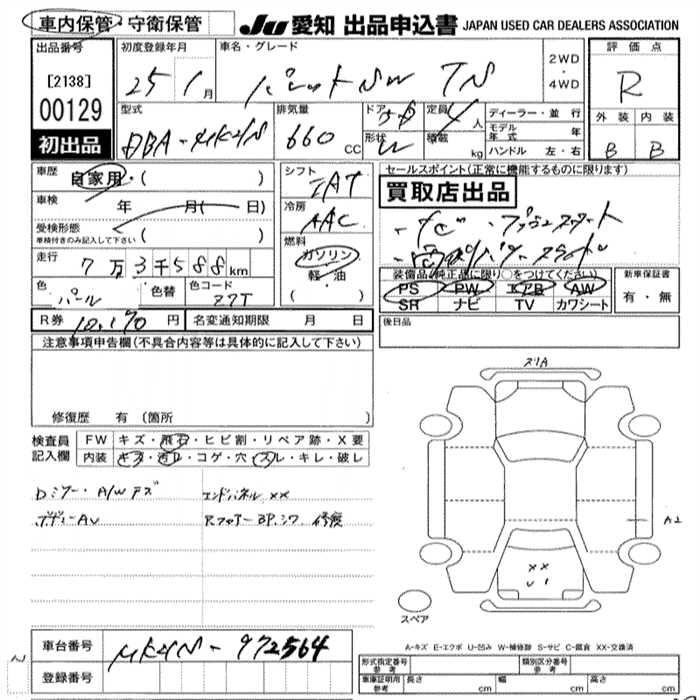 車内保管・守衛保管
JU 愛知 出品申込書 JAPAN USED CAR DEALERS ASSOCIATION
出品番号
[2138]
00129
初出品
初度登録年月
25 1月
車名・グレード
パレットSW TS
2WD
・
4WD
評価点
R
外装 内装
B B
型式
DBA-MK21S
排気量
660 CC
ドア 5D
形状
定員 4人
積載 kg
ディーラー・並行
モデル年式 年
ハンドル 左・右
車歴
自家用・( )
車検
年 月( 日)
受検形態
車検付きのみ記入して下さい ( )
走行
7万3千588km
色
パール
色替
色コード
Z7T
シフト
IAT
冷房
AAC
燃料
ガソリン
軽・油
・( )
セールスポイント(正常に機能するものに限ります)
買取店出品
・ナビ ・プッシュスタート
・両側パワースライド
装備品(純正品に限り○をつけてください)
PS PW エアB AW
SR ナビ TV カワシート
新車保証書
有・無
R券 10,170円
名変通知期限 月 日
後日品
注意事項申告欄(不具合内容等は具体的に記入して下さい)
修復歴 有(箇所 )
検査員
記入欄
FW キズ・飛石・ヒビ割・リペア跡・X要
内装 キズ・汚レ・コゲ・穴・スレ・キレ・破レ
Dミラー・A/Wキズ エンドパネルXX
ボディーAU RフロアーBP.シワ 修復
スリA
A2
XX
U1
スペア
A-キズ E-エクボ U-凹み W-補修跡 S-サビ C-腐食 XX-交換済
車台番号
MK21S-972564
登録番号
形式指定番号
参考
類別区分番号
参考
車庫証明用
参考
長さ cm 幅 cm 高さ cm